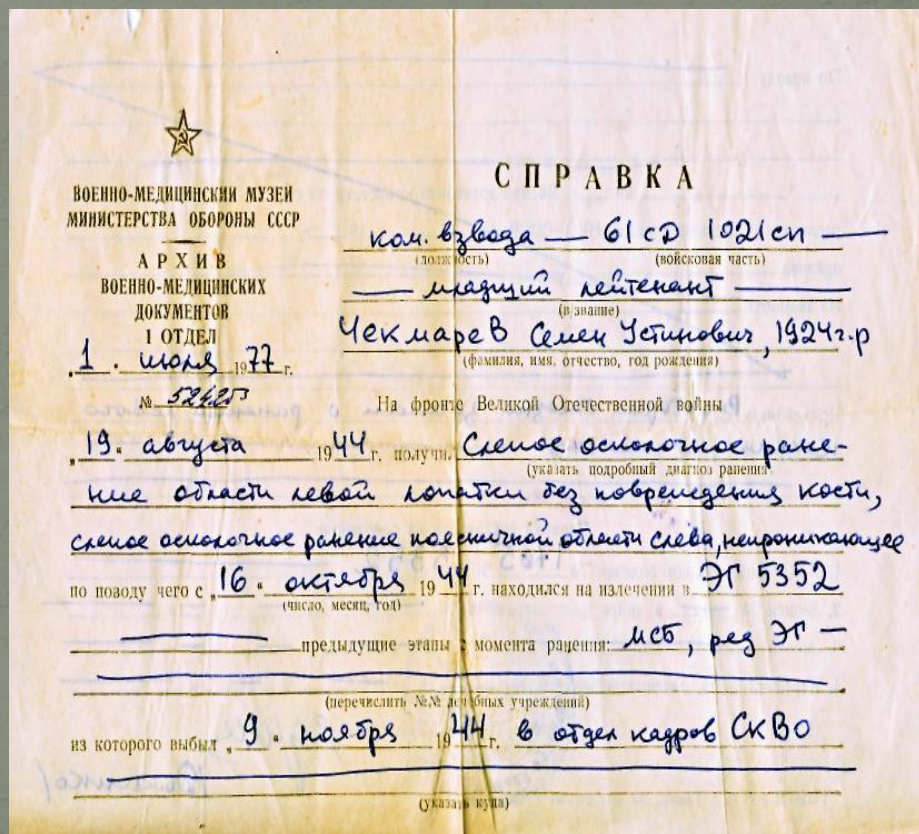 ВОЕННО-МЕДИЦИНСКИЙ МУЗЕЙ
МИНИСТЕРСТВА ОБОРОНЫ СССР
АРХИВ
ВОЕННО-МЕДИЦИНСКИХ
ДОКУМЕНТОВ
1 ОТДЕЛ
„1“ июля 1977 г.
№ 52425
СПРАВКА
ком. взвода — 61 сд 1021 сп —
(должность) (войсковая часть)
— младший лейтенант —
(в звание)
Чекмарев Семен Устинович, 1924 г.р
(фамилия, имя, отчество, год рождения)
На фронте Великой Отечественной войны
„19“ августа 1944 г. получил Слепое осколочное ране-
(указать подробный диагноз ранения
ние области левой лопатки без повреждения кости,
слепое осколочное ранение поясничной области слева, непроникающее
по поводу чего с „16“ октября 1944 г. находился на излечении в ЭГ 5352
(число, месяц, год)
предыдущие этапы с момента ранения: МСБ, ряд ЭГ —
(перечислить №№ лечебных учреждений)
из которого выбыл „9“ ноября 1944 г. в отдел кадров СКВО
(указать куда)